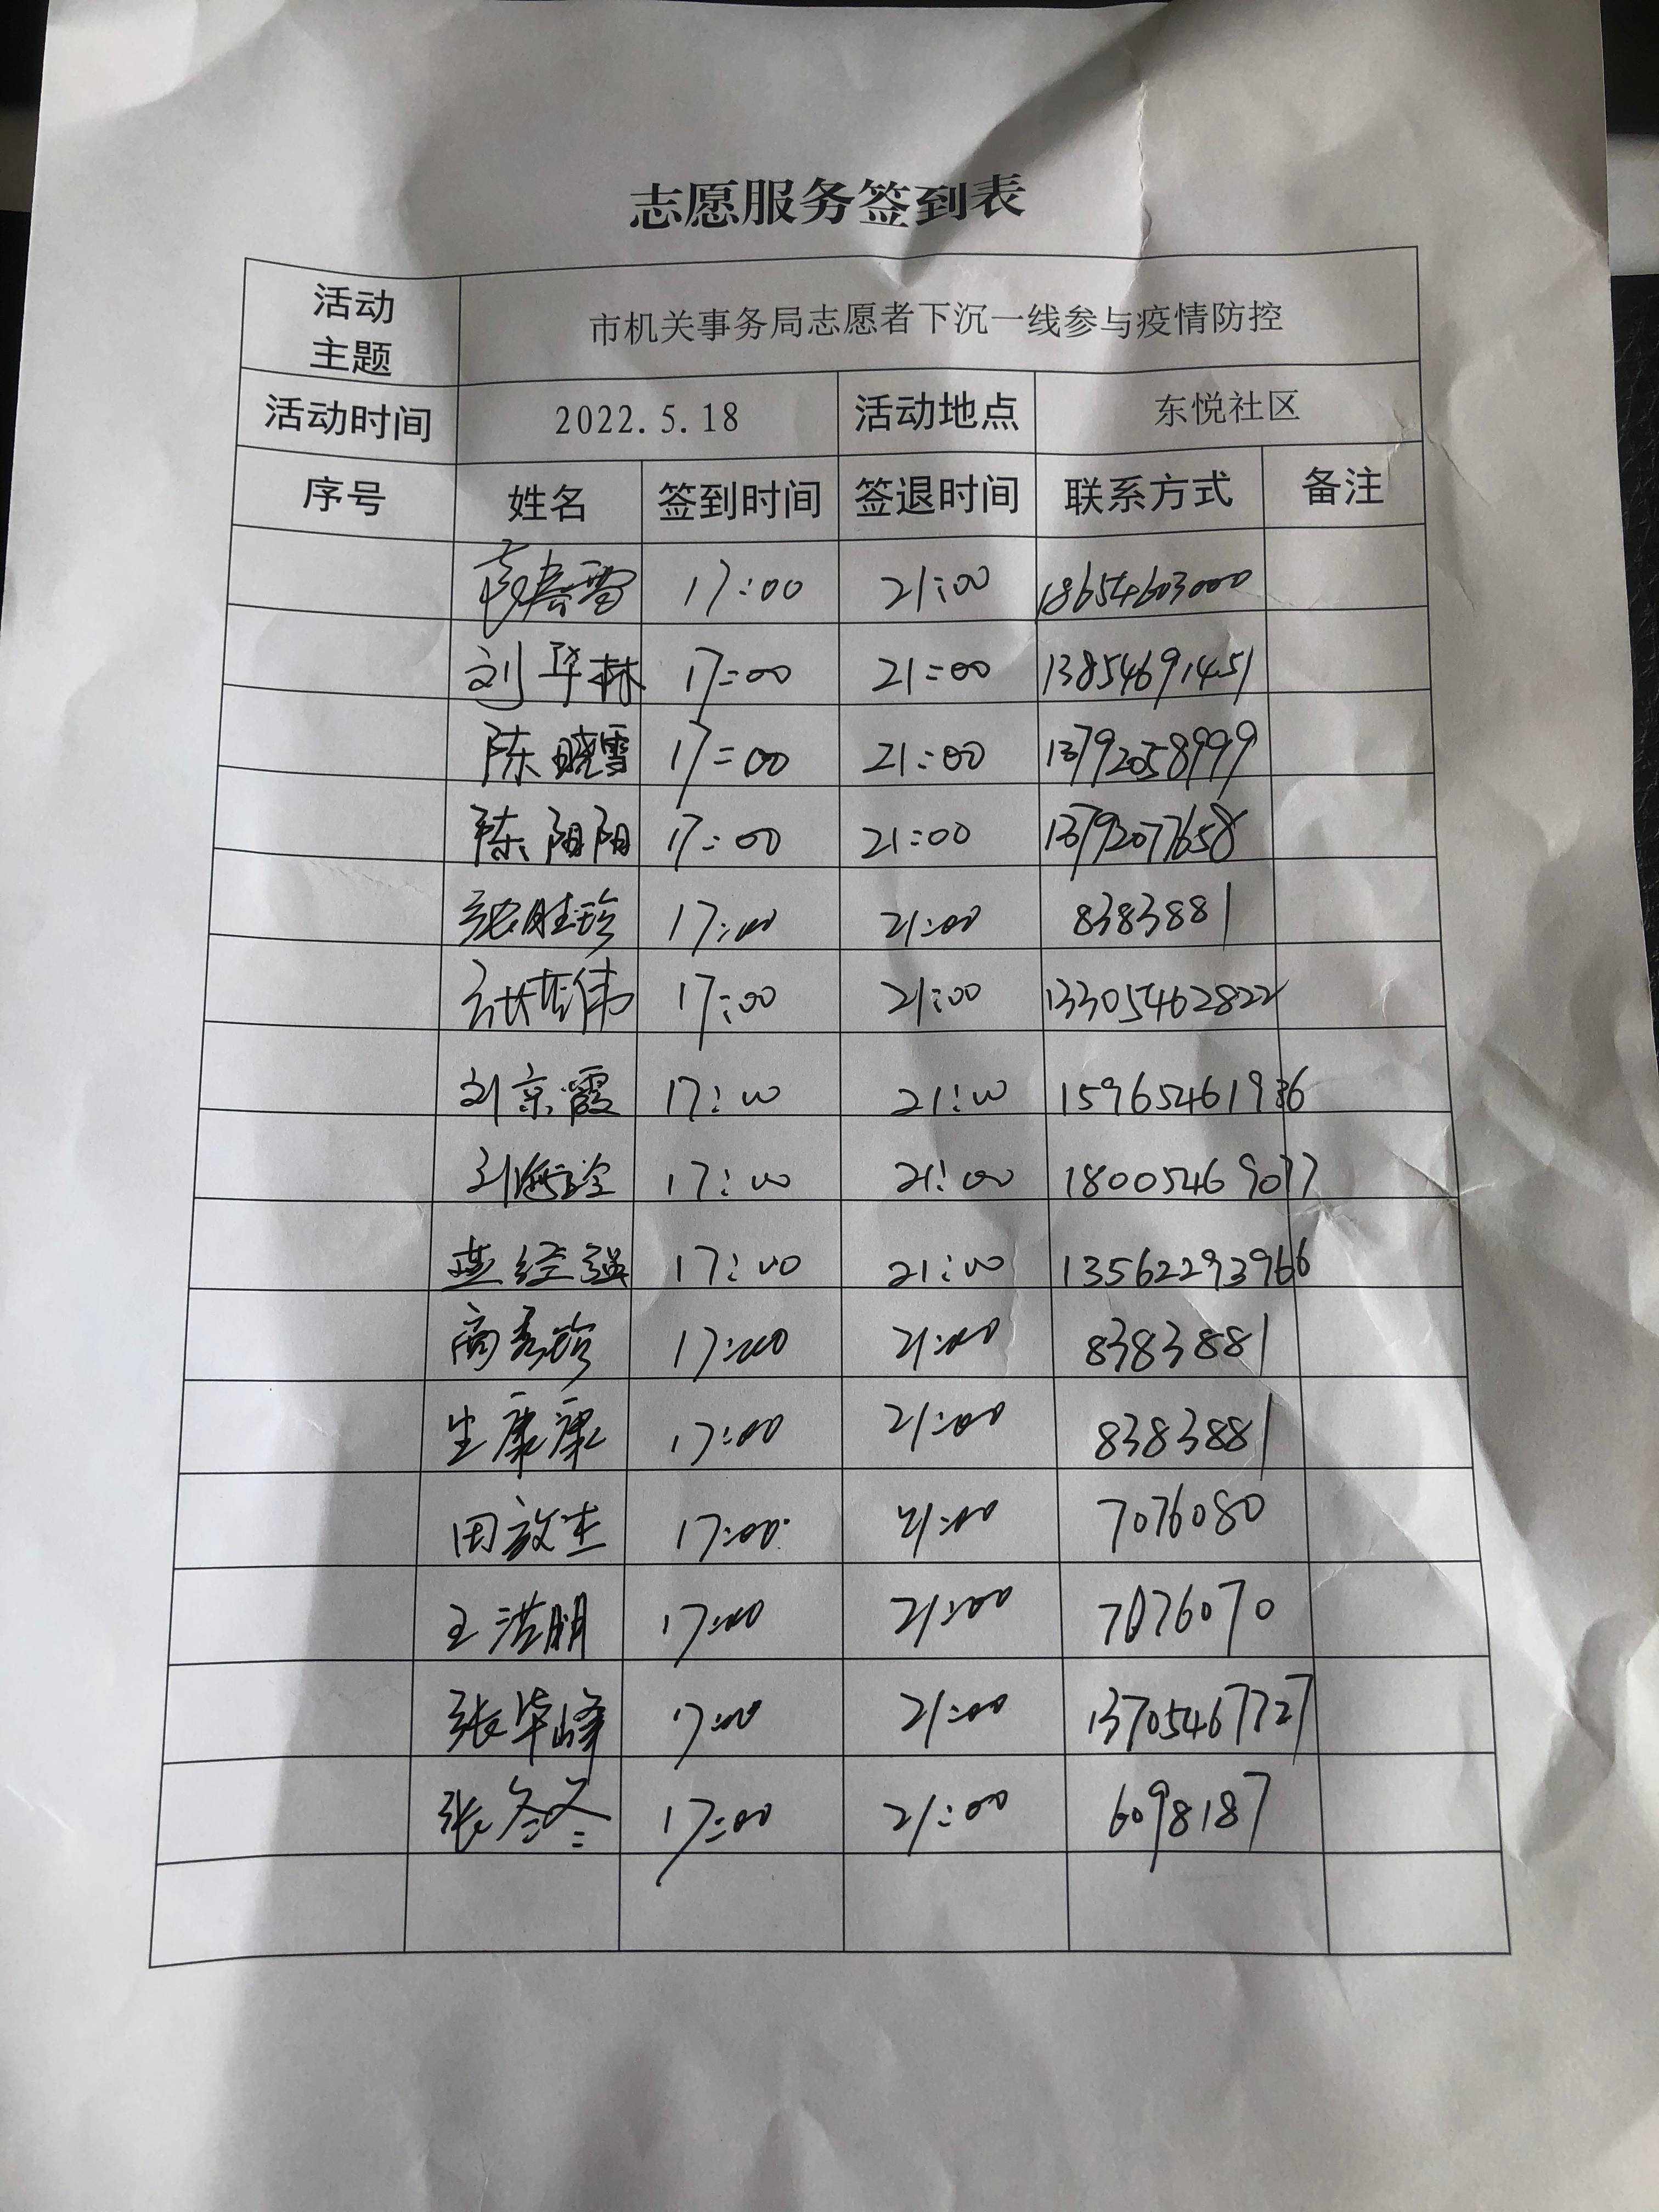 志愿服务签到表
活动主题 市机关事务局志愿者下沉一线参与疫情防控
活动时间 2022.5.18 活动地点 东悦社区
序号 姓名 签到时间 签退时间 联系方式 备注
17:00 21:00 18654603000
刘华林 17:00 21:00 13854691451
陈晓雪 17:00 21:00 13792058999
陈阳阳 17:00 21:00 13792077658
张胜珍 17:00 21:00 8383881
张哲伟 17:00 21:00 13305462822
刘京霞 17:00 21:00 15965461936
刘海玲 17:00 21:00 18005469077
燕经强 17:00 21:00 13562293966
商秀珍 17:00 21:00 8383881
生康康 17:00 21:00 8383881
田放杰 17:00 21:00 7076080
王洪朋 17:00 21:00 7076070
张华峰 17:00 21:00 13705467727
张冬冬 17:00 21:00 6098187